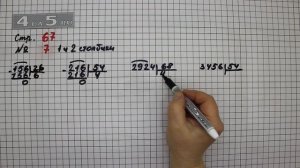 4 а 5 mm
Стр. 67
№ 7 1 и 2 столбики
156 26 216 54 2924 68 3456 54
156 6 216 4 4
0 0